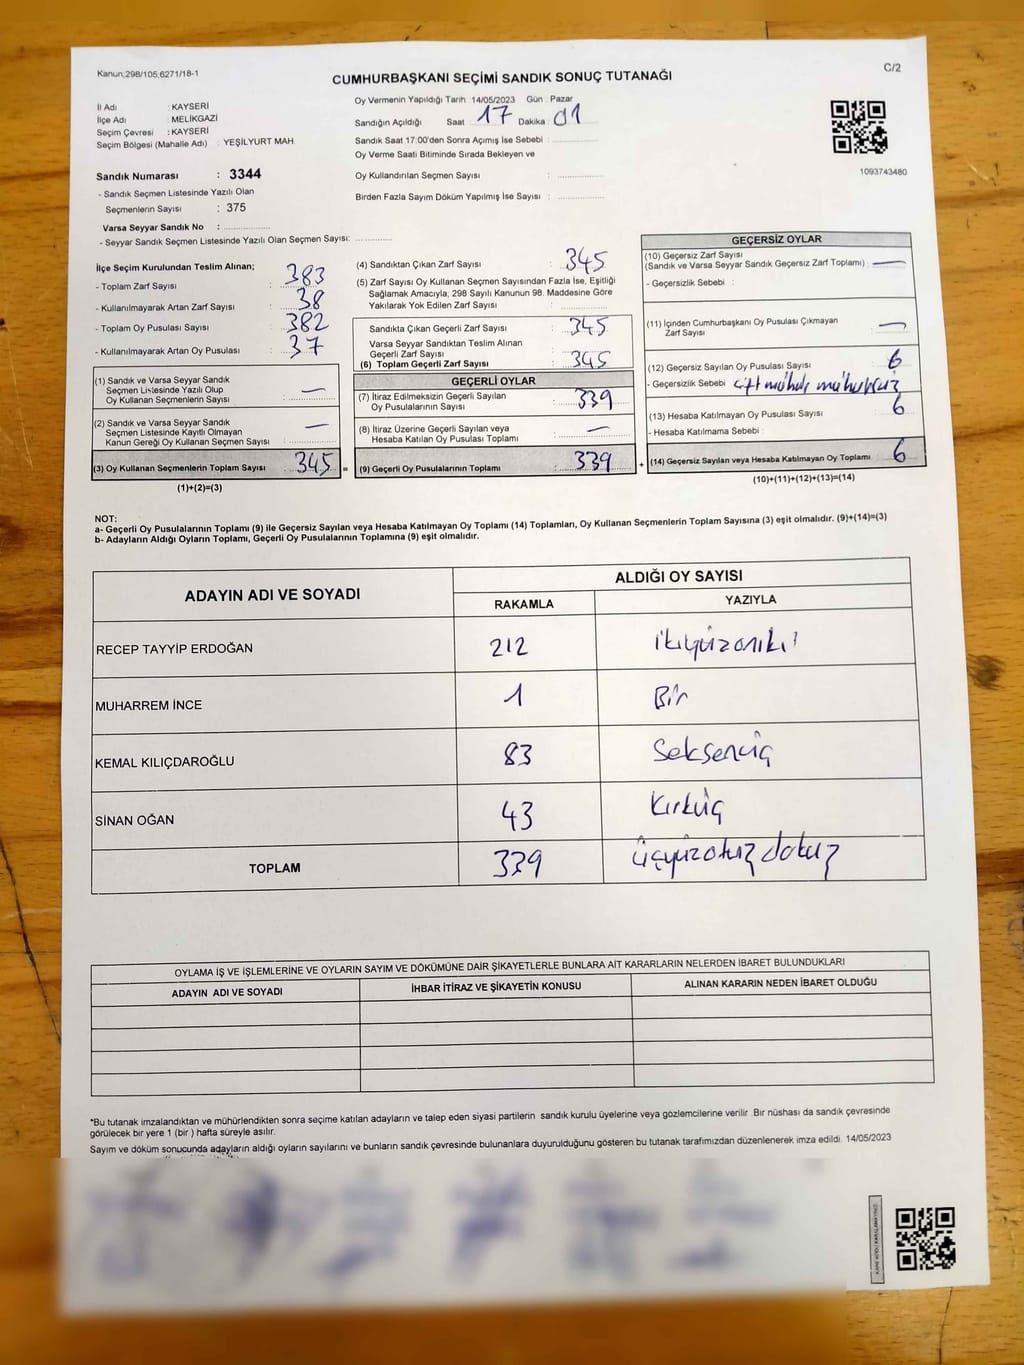 Kanun;298/105,6271/18-1
CUMHURBAŞKANI SEÇİMİ SANDIK SONUÇ TUTANAĞI
C/2
İl Adı : KAYSERİ
İlçe Adı : MELİKGAZİ
Seçim Çevresi : KAYSERİ
Seçim Bölgesi (Mahalle Adı) : YEŞİLYURT MAH.
Sandık Numarası : 3344
- Sandık Seçmen Listesinde Yazılı Olan
Seçmenlerin Sayısı : 375
Varsa Seyyar Sandık No :
- Seyyar Sandık Seçmen Listesinde Yazılı Olan Seçmen Sayısı:
Oy Vermenin Yapıldığı Tarih 14/05/2023 Gün : Pazar
Sandığın Açıldığı Saat 17 Dakika : 01
Sandık Saat 17:00'den Sonra Açımış İse Sebebi :
Oy Verme Saati Bitiminde Sırada Bekleyen ve
Oy Kullandırılan Seçmen Sayısı :
Birden Fazla Sayım Döküm Yapılmış İse Sayısı :
1093743480
İlçe Seçim Kurulundan Teslim Alınan;
- Toplam Zarf Sayısı : 383
- Kullanılmayarak Artan Zarf Sayısı : 38
- Toplam Oy Pusulası Sayısı : 382
- Kullanılmayarak Artan Oy Pusulası : 37
(1) Sandık ve Varsa Seyyar Sandık
Seçmen Listesinde Yazılı Olup
Oy Kullanan Seçmenlerin Sayısı : —
(2) Sandık ve Varsa Seyyar Sandık
Seçmen Listesinde Kayıtlı Olmayan
Kanun Gereği Oy Kullanan Seçmen Sayısı : —
(3) Oy Kullanan Seçmenlerin Toplam Sayısı : 345 =
(1)+(2)=(3)
(4) Sandıktan Çıkan Zarf Sayısı : 345
(5) Zarf Sayısı Oy Kullanan Seçmen Sayısından Fazla İse, Eşitliği
Sağlamak Amacıyla; 298 Sayılı Kanunun 98. Maddesine Göre
Yakılarak Yok Edilen Zarf Sayısı :
Sandıkta Çıkan Geçerli Zarf Sayısı : 345
Varsa Seyyar Sandıktan Teslim Alınan
Geçerli Zarf Sayısı
(6) Toplam Geçerli Zarf Sayısı : 345
GEÇERLİ OYLAR
(7) İtiraz Edilmeksizin Geçerli Sayılan
Oy Pusulalarının Sayısı : 339
(8) İtiraz Üzerine Geçerli Sayılan veya
Hesaba Katılan Oy Pusulası Toplamı : —
(9) Geçerli Oy Pusulalarının Toplamı : 339 +
GEÇERSİZ OYLAR
(10) Geçersiz Zarf Sayısı
(Sandık ve Varsa Seyyar Sandık Geçersiz Zarf Toplamı) : —
- Geçersizlik Sebebi :
(11) İçinden Cumhurbaşkanı Oy Pusulası Çıkmayan
Zarf Sayısı : —
(12) Geçersiz Sayılan Oy Pusulası Sayısı : 6
- Geçersizlik Sebebi : çift mühür mühürsüz
(13) Hesaba Katılmayan Oy Pusulası Sayısı : 6
- Hesaba Katılmama Sebebi :
(14) Geçersiz Sayılan veya Hesaba Katılmayan Oy Toplamı : 6
(10)+(11)+(12)+(13)=(14)
NOT:
a- Geçerli Oy Pusulalarının Toplamı (9) ile Geçersiz Sayılan veya Hesaba Katılmayan Oy Toplamı (14) Toplamları, Oy Kullanan Seçmenlerin Toplam Sayısına (3) eşit olmalıdır. (9)+(14)=(3)
b- Adayların Aldığı Oyların Toplamı, Geçerli Oy Pusulalarının Toplamına (9) eşit olmalıdır.
ADAYIN ADI VE SOYADI
ALDIĞI OY SAYISI
RAKAMLA YAZIYLA
RECEP TAYYİP ERDOĞAN 212 ikiyüzoniki
MUHARREM İNCE 1 Bir
KEMAL KILIÇDAROĞLU 83 Seksenüç
SİNAN OĞAN 43 Kırküç
TOPLAM 339 üçyüzotuz dokuz
OYLAMA İŞ VE İŞLEMLERİNE VE OYLARIN SAYIM VE DÖKÜMÜNE DAİR ŞİKAYETLERLE BUNLARA AİT KARARLARIN NELERDEN İBARET BULUNDUKLARI
ADAYIN ADI VE SOYADI İHBAR İTİRAZ VE ŞİKAYETİN KONUSU ALINAN KARARIN NEDEN İBARET OLDUĞU
*Bu tutanak imzalandıktan ve mühürlendikten sonra seçime katılan adayların ve talep eden siyasi partilerin sandık kurulu üyelerine veya gözlemcilerine verilir. Bir nüshası da sandık çevresinde
görülecek bir yere 1 (bir ) hafta süreyle asılır.
Sayım ve döküm sonucunda adayların aldığı oyların sayılarını ve bunların sandık çevresinde bulunanlara duyurulduğunu gösteren bu tutanak tarafımızdan düzenlenerek imza edildi. 14/05/2023